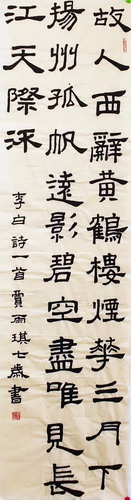 故人西辭黃鶴樓煙華三月下
揚州孤帆遠影碧空盡唯見長
江天際流
李白詩一首 賈雨琪七歲書